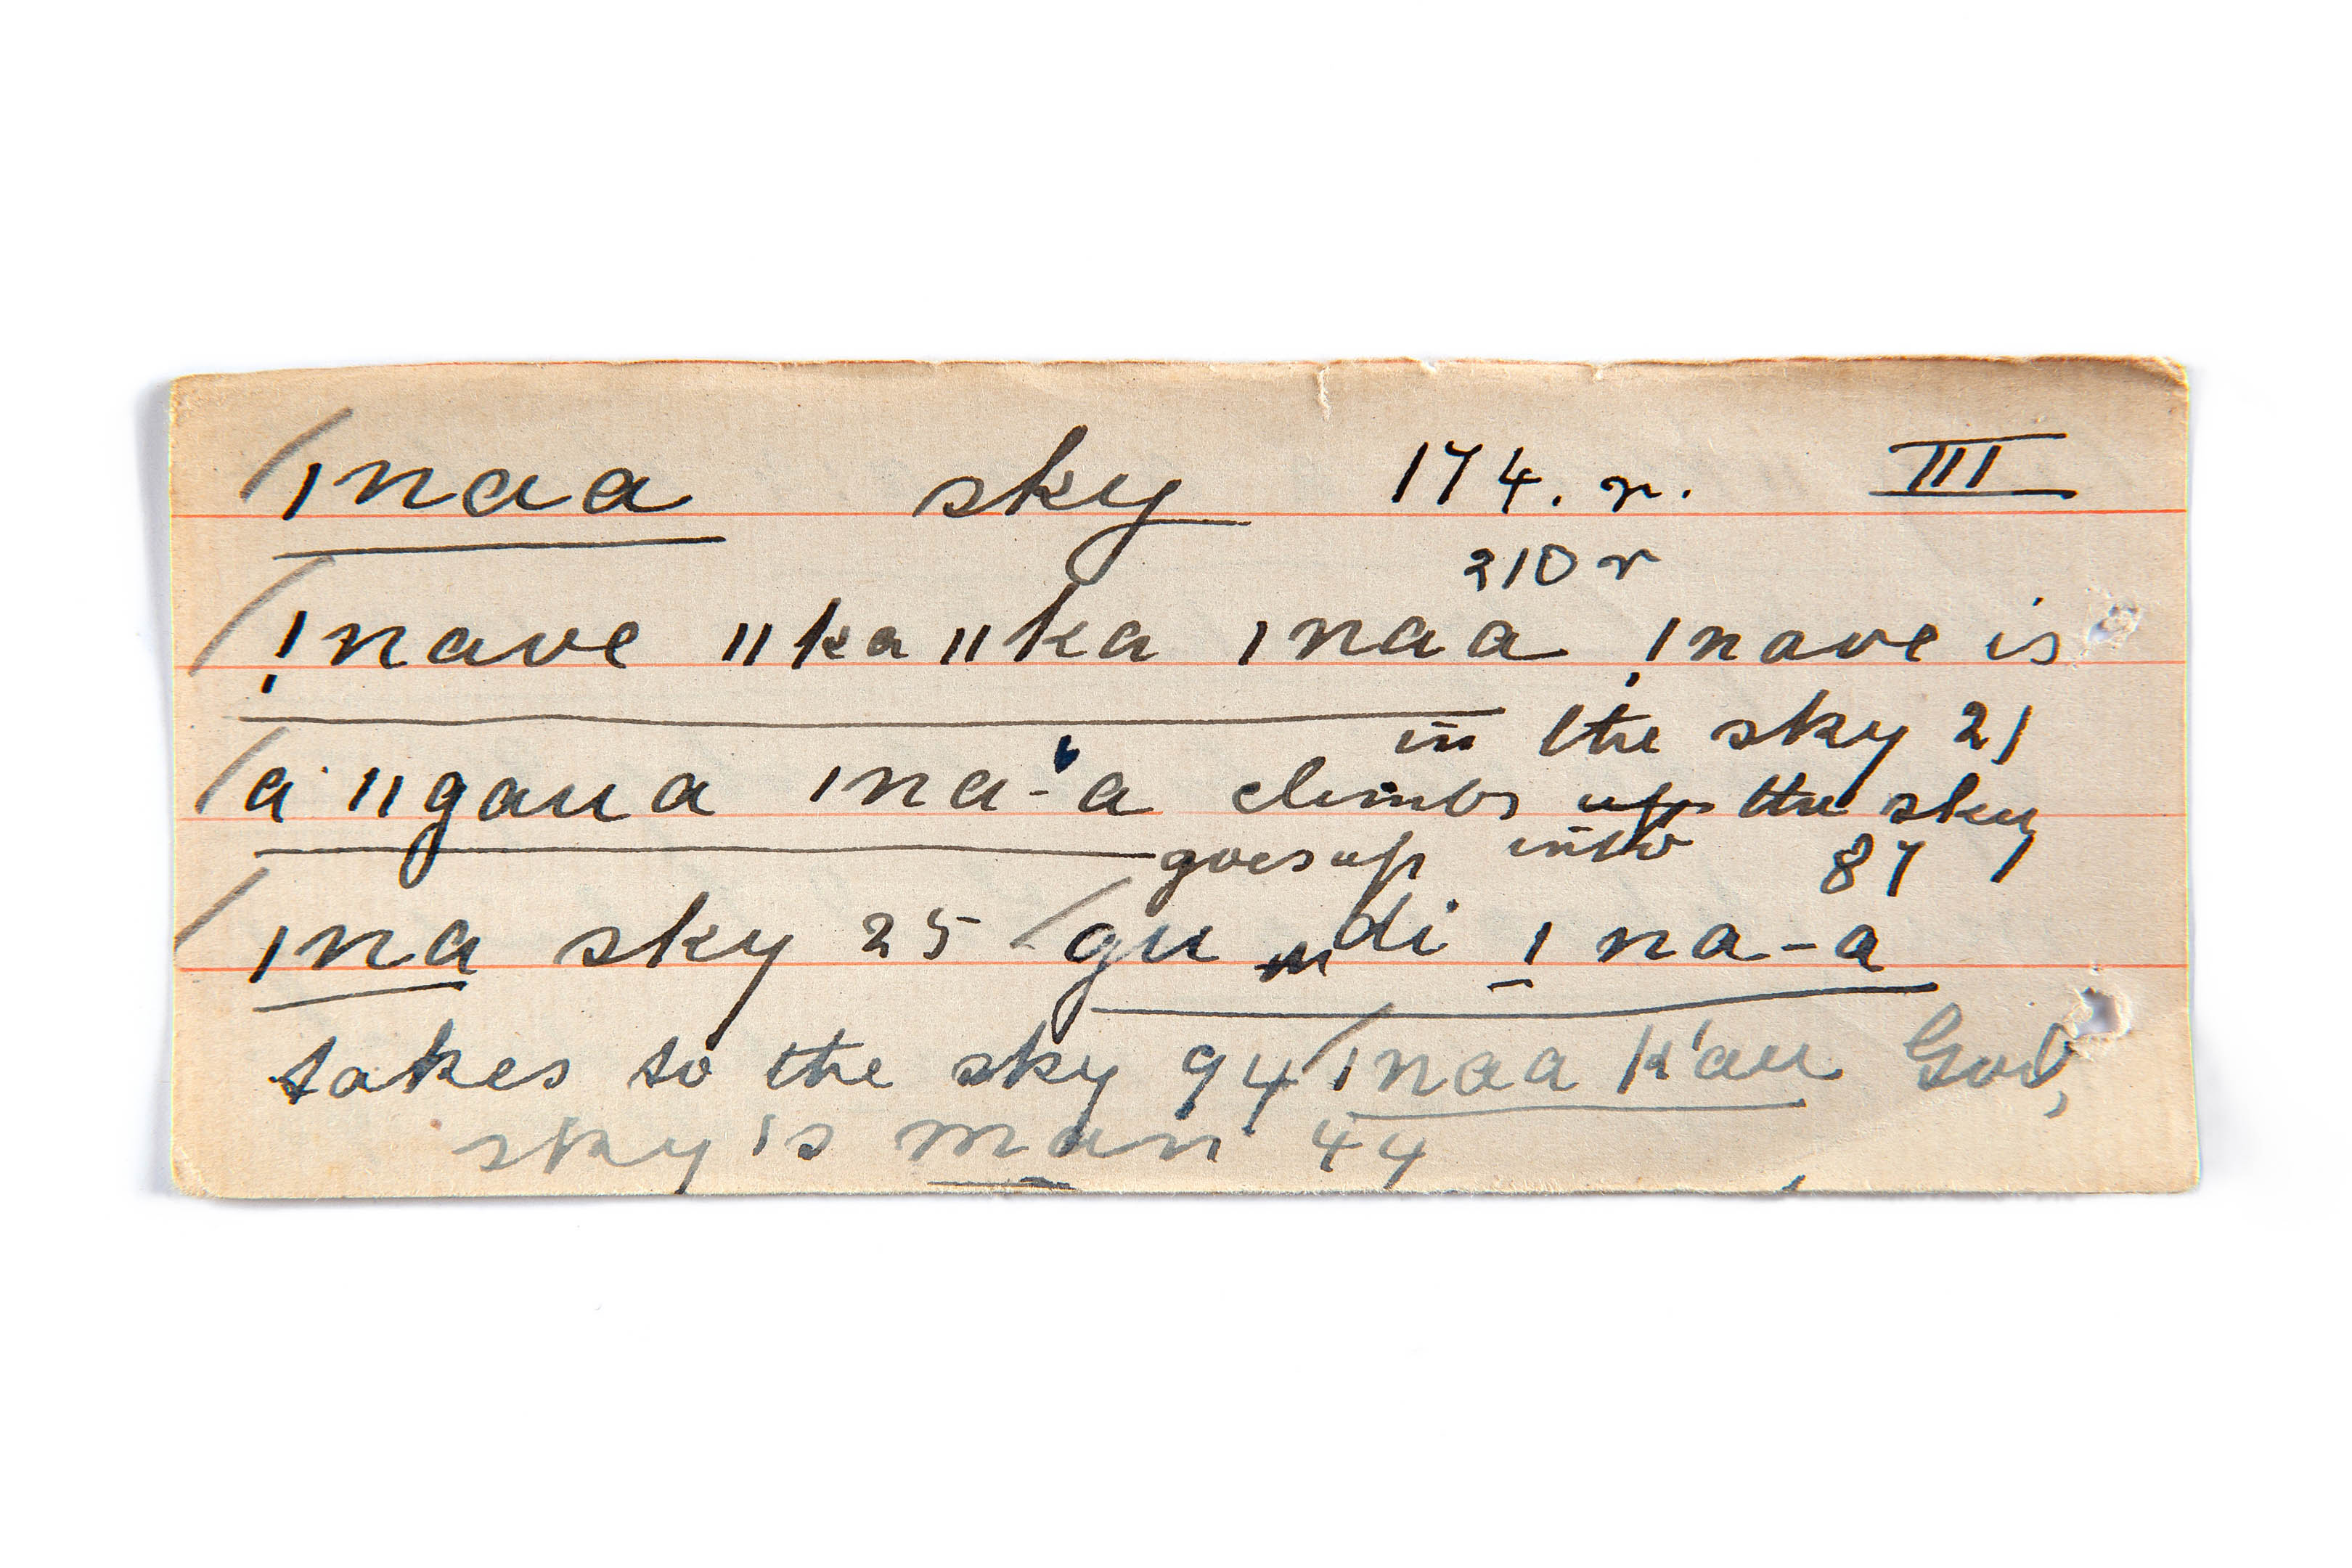 ǀnaa sky 174. r. III
210 r
ǃnave ǁkaǁka ǀnaa ǃnave is
in the sky 21
a ǁgaua ǀna-a climbs up the sky
goes up into 87
ǀna sky 25 gu di ǀ na-a
takes to the sky 94 ǀnaa k'au God,
sky is man 44